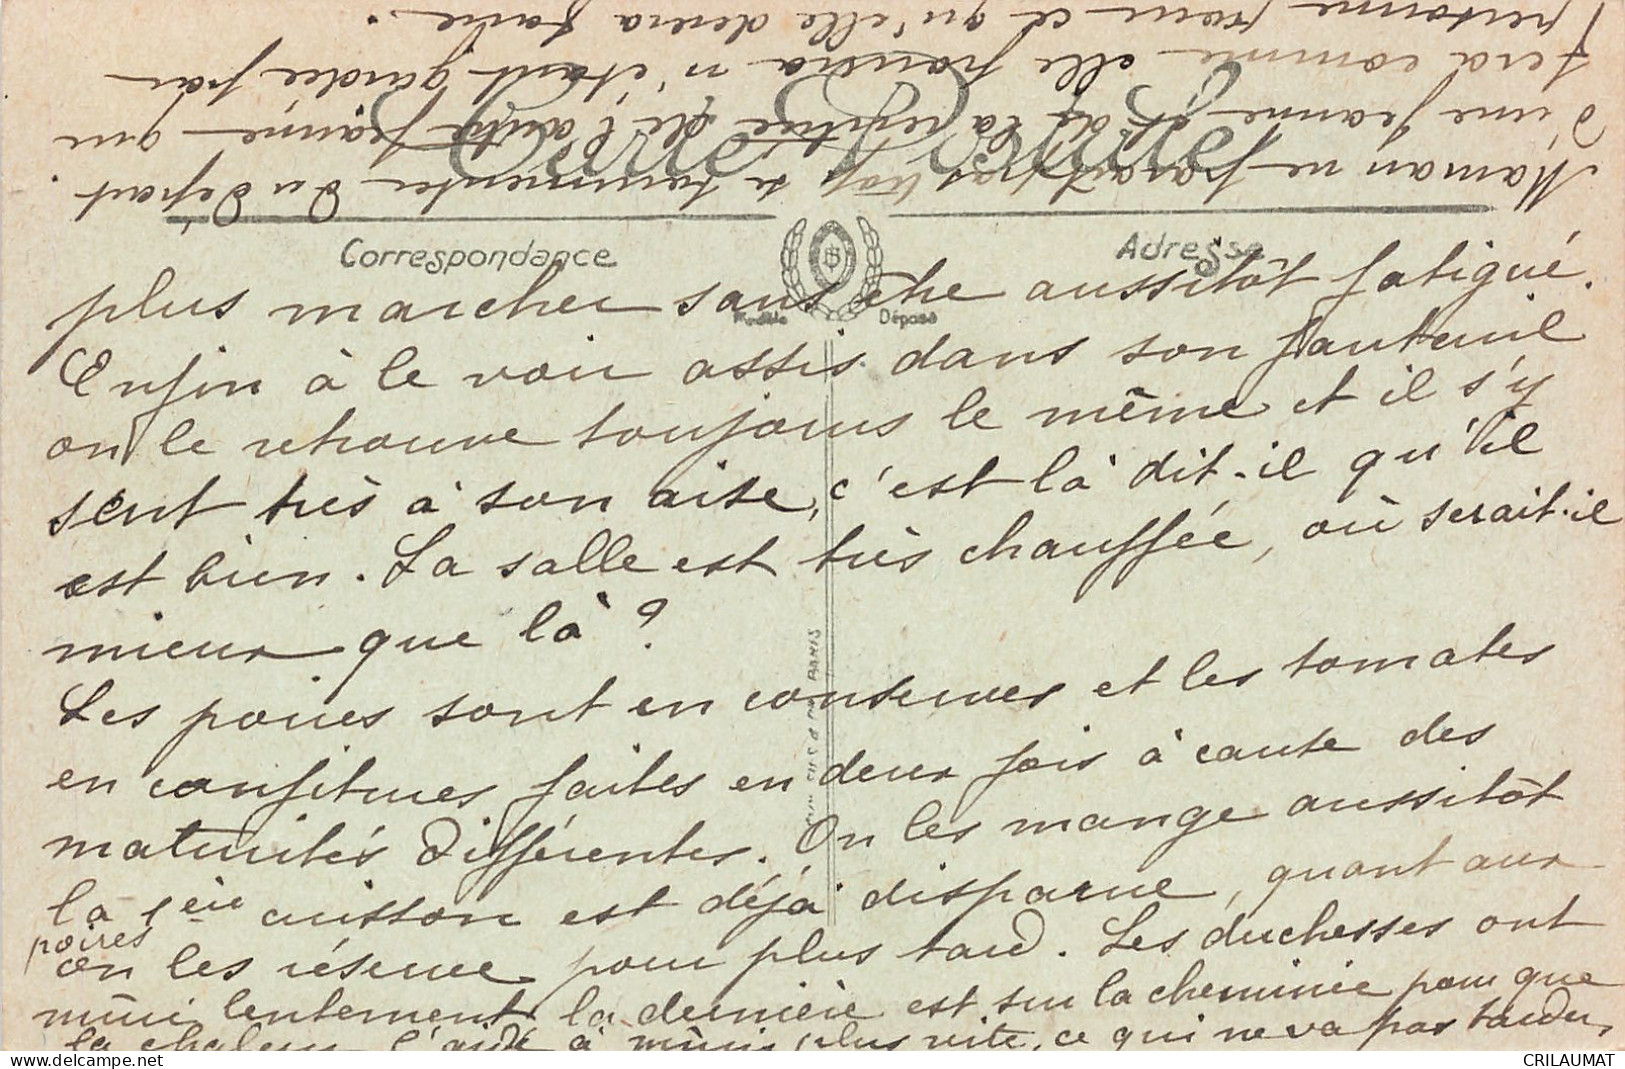 Carte Postale
Correspondance
Adresse
Modèle Déposé
BS
plus marcher sans être aussitôt fatigué.
Enfin à le voir assis dans son fauteuil
on le retrouve toujours le même et il s'y
sent très à son aise, c'est là dit-il qu'il
est bien. La salle est très chauffée, où serait-il
mieux que là ?
Les poires sont en conserves et les tomates
en confitures faites en deux fois à cause des
maturités différentes. On les mange aussitôt
la 1ère cuisson est déjà disparue, quant aux
poires
on les réserve pour plus tard. Les duchesses ont
mûri lentement la dernière est sur la cheminée pour que
la chaleur l'aide à mûrir plus vite, ce qui ne va pas tarder.
Maman ne paraît pas trop se tourmenter du départ
d'une Jeanne et de la venue de l'autre Jeanne qui
fera comme elle pourra n'étant guidée par
personne pour ce qu'elle devra faire.
PARIS
CRILAUMAT